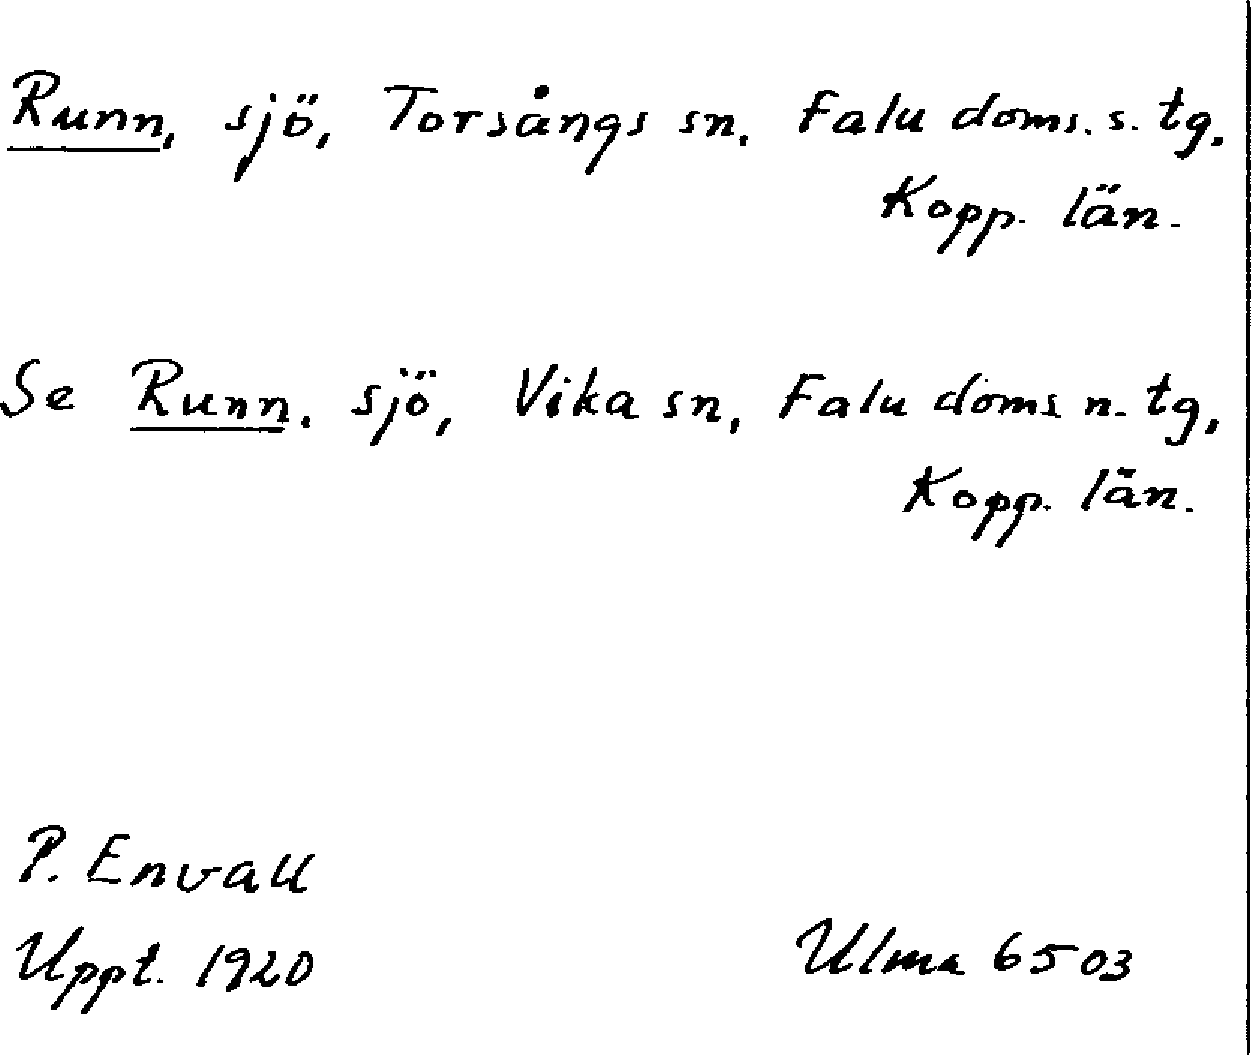 Runn, sjö, Torsångs sn. Falu doms. s. tg,
Kopp. län.
Se Runn. sjö, Vika sn, Falu doms n. tg,
Kopp. län.
P. Envall
Uppt. 1920
Ulma 6503